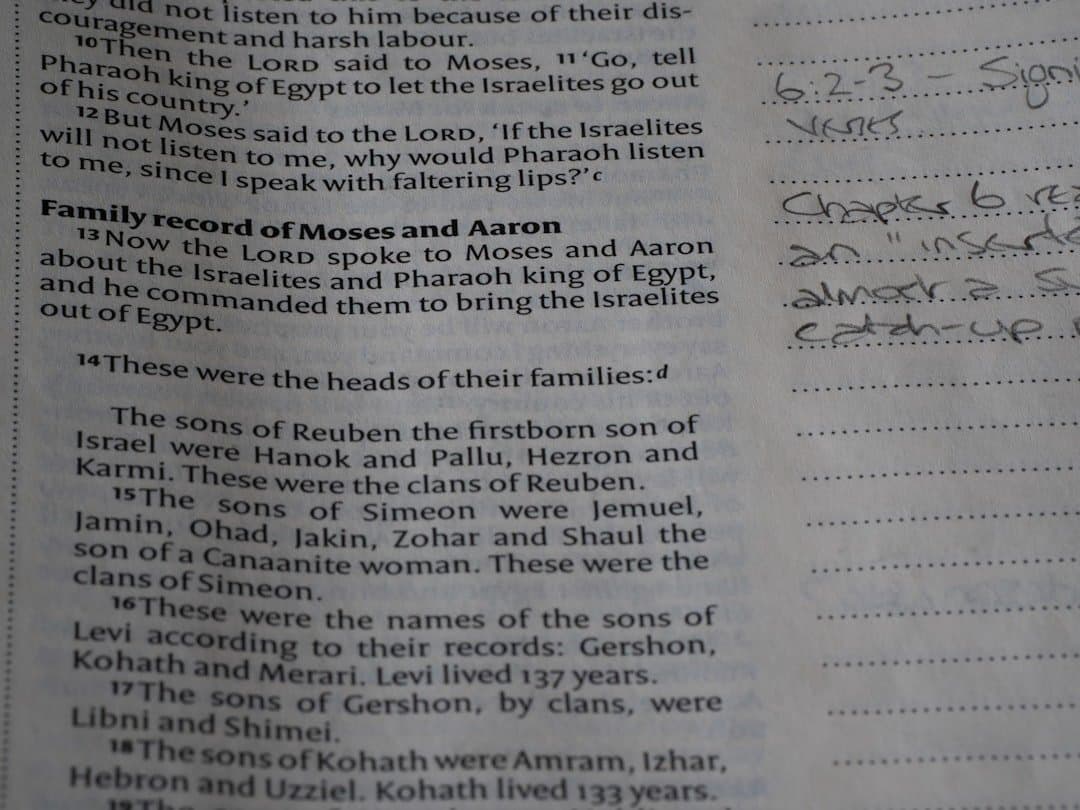 did not listen to him because of their dis-
couragement and harsh labour.
10 Then the LORD said to Moses, 11 ‘Go, tell
Pharaoh king of Egypt to let the Israelites go out
of his country.’
12 But Moses said to the LORD, ‘If the Israelites
will not listen to me, why would Pharaoh listen
to me, since I speak with faltering lips?’ c
Family record of Moses and Aaron
13 Now the LORD spoke to Moses and Aaron
about the Israelites and Pharaoh king of Egypt,
and he commanded them to bring the Israelites
out of Egypt.
14 These were the heads of their families: d
The sons of Reuben the firstborn son of
Israel were Hanok and Pallu, Hezron and
Karmi. These were the clans of Reuben.
15 The sons of Simeon were Jemuel,
Jamin, Ohad, Jakin, Zohar and Shaul the
son of a Canaanite woman. These were the
clans of Simeon.
16 These were the names of the sons of
Levi according to their records: Gershon,
Kohath and Merari. Levi lived 137 years.
17 The sons of Gershon, by clans, were
Libni and Shimei.
18 The sons of Kohath were Amram, Izhar,
Hebron and Uzziel. Kohath lived 133 years.
6:2-3 - Signi
verses
Chapter 6 rea
an "inserte
almost a su
catch-up